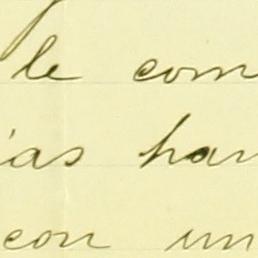 le com
ias han
con un